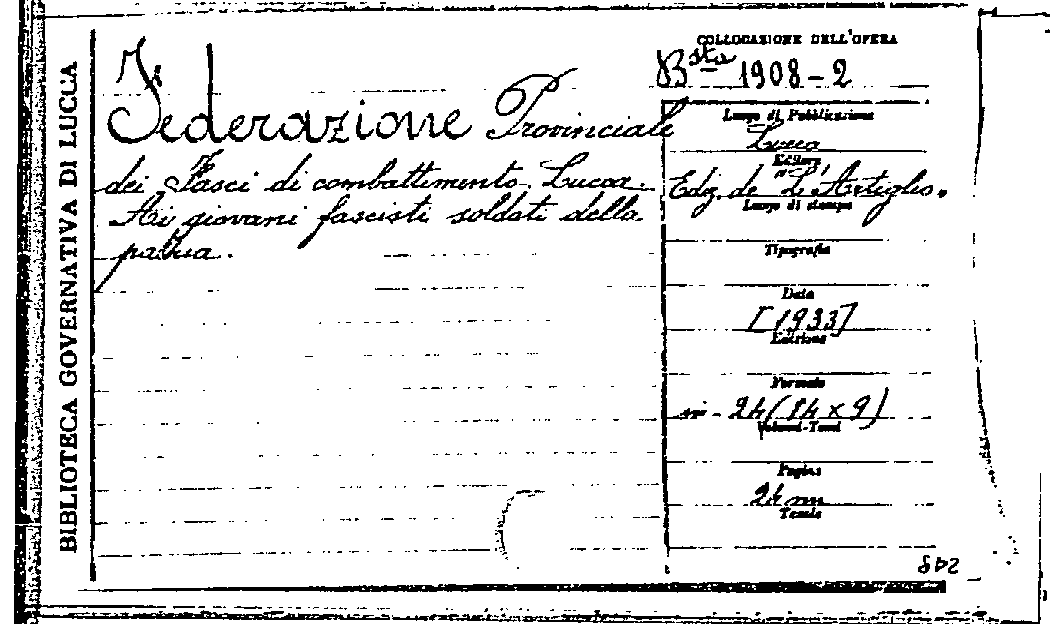 BIBLIOTECA GOVERNATIVA DI LUCCA
Federazione Provinciale
dei Fasci di combattimento. Lucca.
Ai giovani fascisti soldati della
patria.
COLLOCAZIONE DELL'OPERA
Bsta 1908-2
Luogo di Pubblicazione
Lucca
Editore
Ediz. de "L'Artiglio.
Luogo di stampa
Tipografia
Data
[1933]
Edizione
Formato
in-24 (14 x 9)
Volumi-Tomi
Pagine
24 nn
Tavole
248